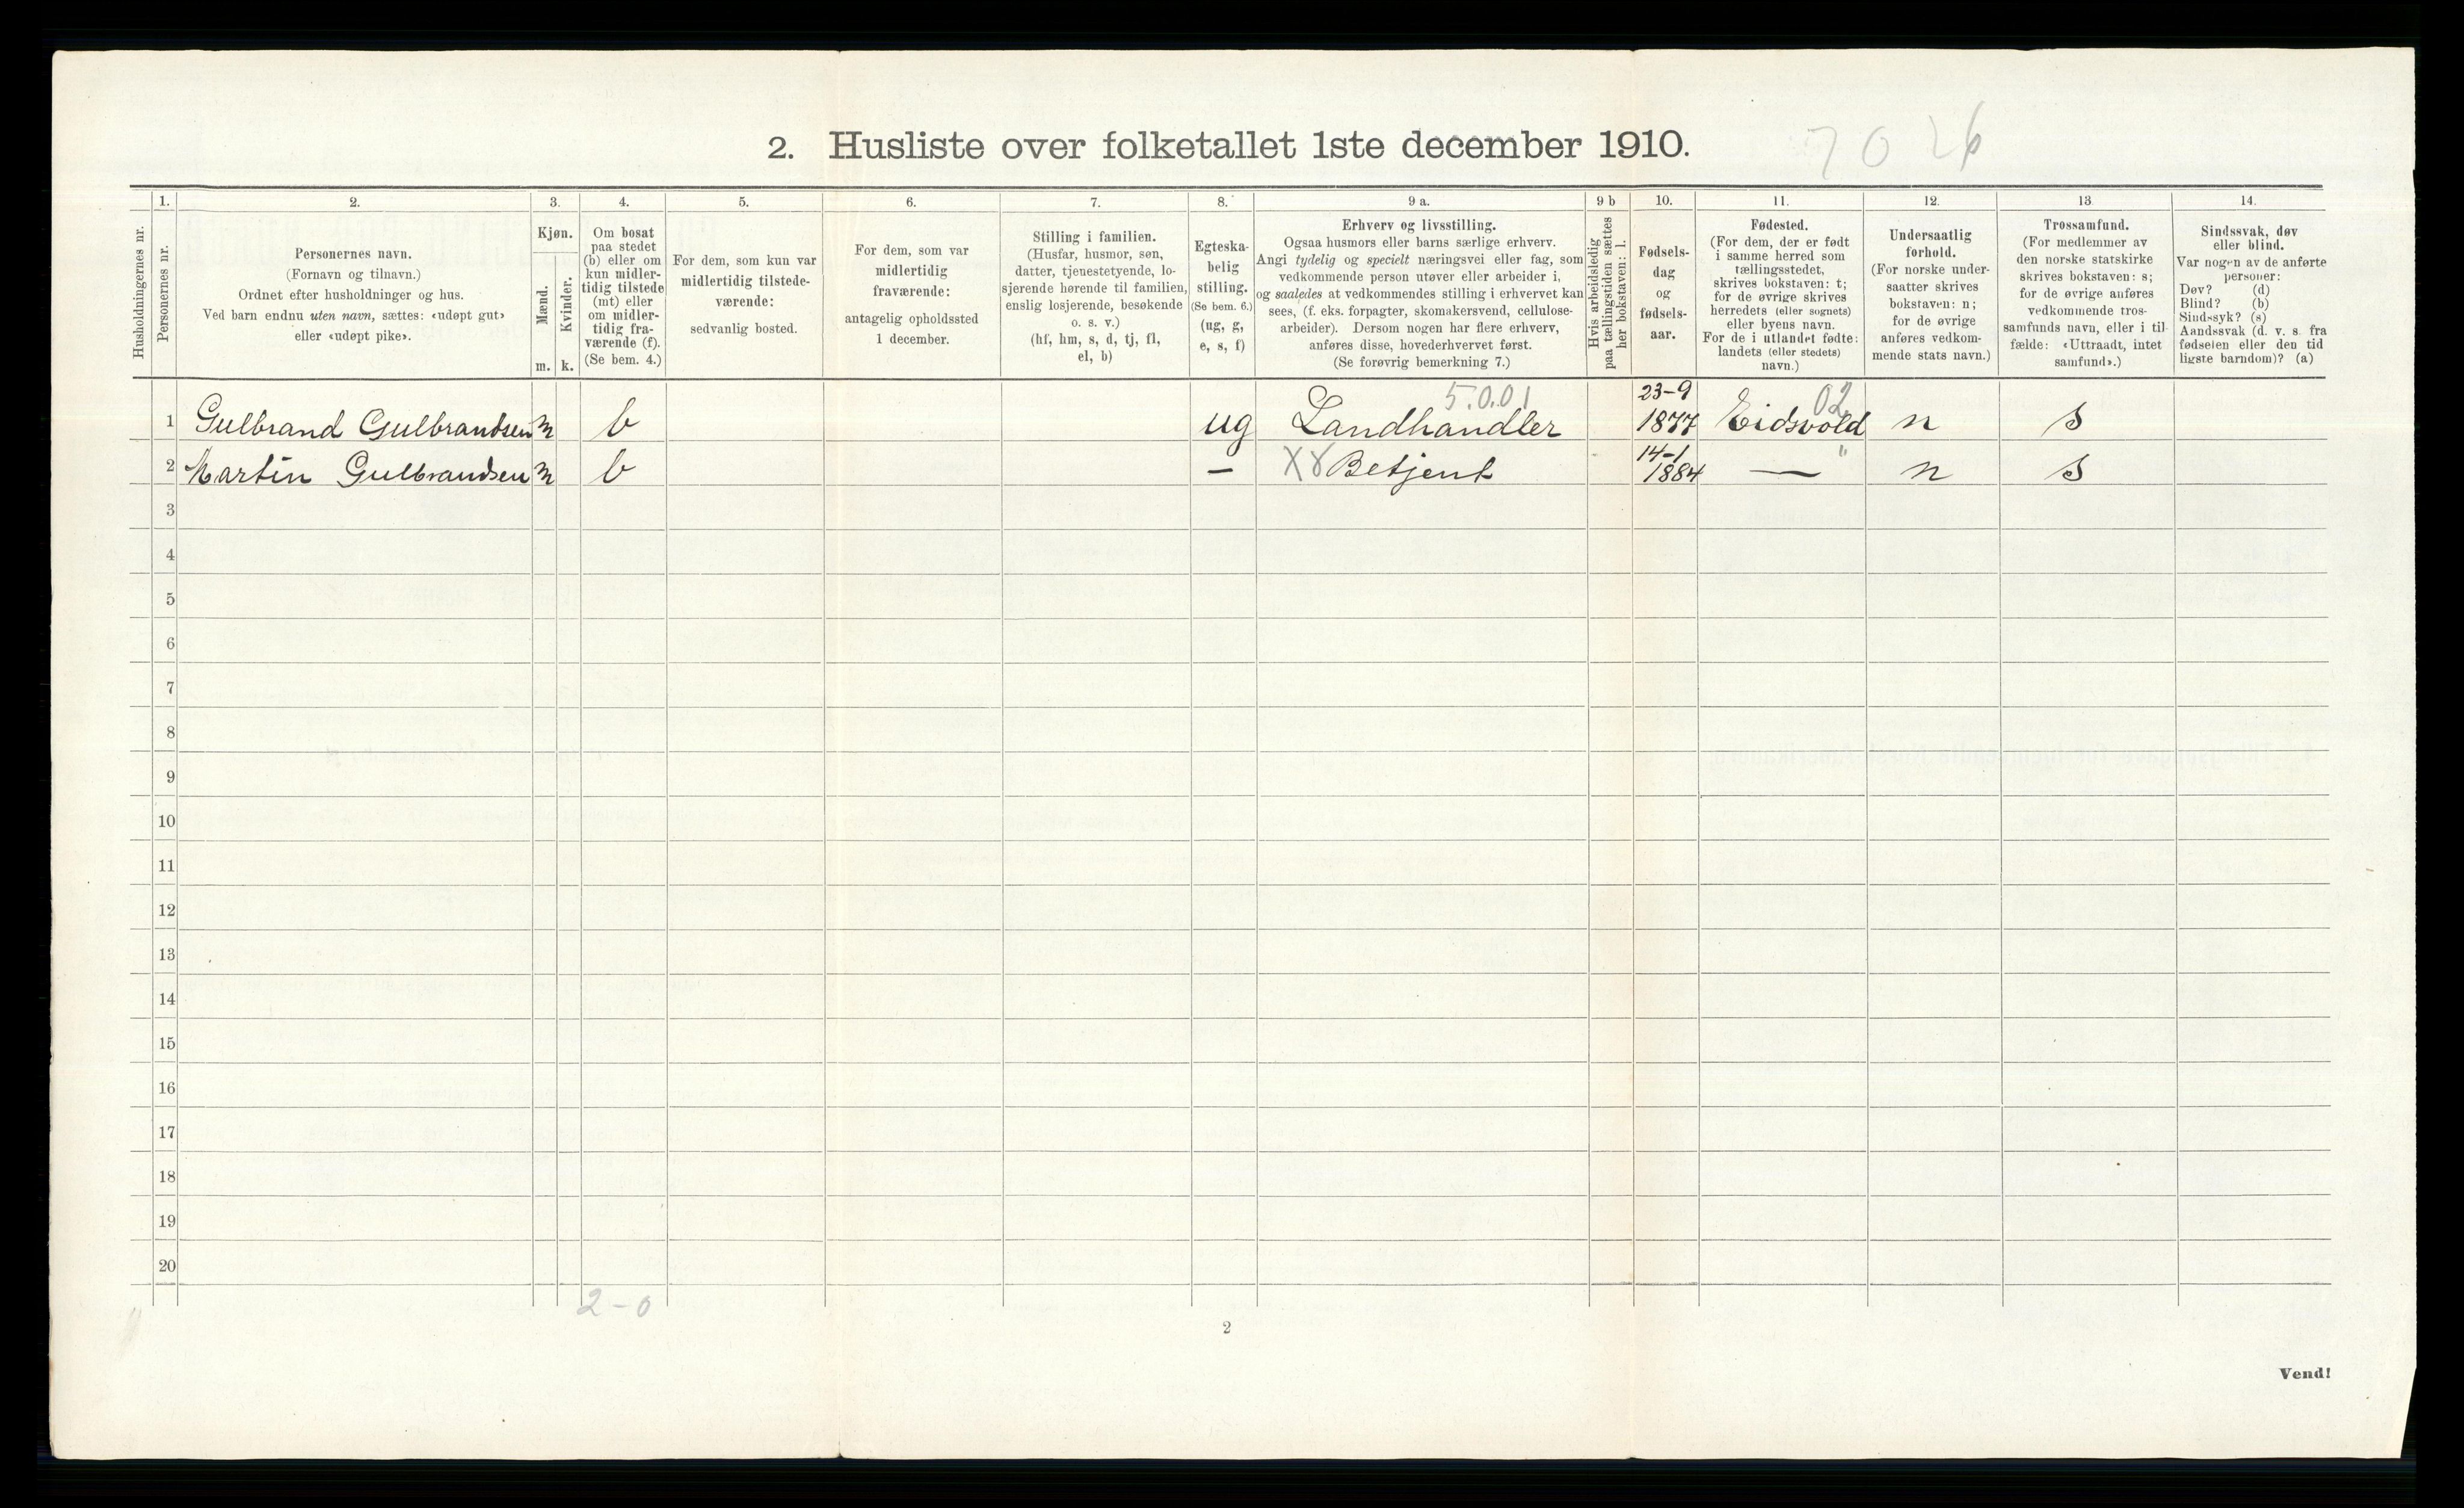 2. Husliste over folketallet 1ste december 1910.
7026
Husholdningernes nr.
1.
Personernes nr.
2.
Personernes navn.
(Fornavn og tilnavn.)
Ordnet efter husholdninger og hus.
Ved barn endnu uten navn, sættes: «udøpt gut»
eller «udøpt pike».
3.
Kjøn.
Mænd.
Kvinder.
m. k.
4.
Om bosat
paa stedet
(b) eller om
kun midler-
tidig tilstede
(mt) eller
om midler-
tidig fra-
værende (f).
(Se bem. 4.)
5.
For dem, som kun var
midlertidig tilstede-
værende:
sedvanlig bosted.
6.
For dem, som var
midlertidig
fraværende:
antagelig opholdssted
1 december.
7.
Stilling i familien.
(Husfar, husmor, søn,
datter, tjenestetyende, lo-
sjerende hørende til familien,
enslig losjerende, besøkende
o. s. v.)
(hf, hm, s, d, tj, fl,
el, b)
8.
Egteska-
belig
stilling.
(Se bem. 6.)
(ug, g,
e, s, f)
9 a.
Erhverv og livsstilling.
Ogsaa husmors eller barns særlige erhverv.
Angi tydelig og specielt næringsvei eller fag, som
vedkommende person utøver eller arbeider i,
og saaledes at vedkommendes stilling i erhvervet kan
sees, (f. eks. forpagter, skomakersvend, cellulose-
arbeider). Dersom nogen har flere erhverv,
anføres disse, hovederhvervet først.
(Se forøvrig bemerkning 7.)
9 b
Hvis arbeidsledig
paa tællingstiden sættes
her bokstaven: l.
10.
Fødsels-
dag
og
fødsels-
aar.
11.
Fødested.
(For dem, der er født
i samme herred som
tællingsstedet,
skrives bokstaven: t;
for de øvrige skrives
herredets (eller sognets)
eller byens navn.
For de i utlandet fødte:
landets (eller stedets)
navn.)
12.
Undersaatlig
forhold.
(For norske under-
saatter skrives
bokstaven: n;
for de øvrige
anføres vedkom-
mende stats navn.)
13
Trossamfund.
(For medlemmer av
den norske statskirke
skrives bokstaven: s;
for de øvrige anføres
vedkommende tros-
samfunds navn, eller i til-
fælde: «Uttraadt, intet
samfund».)
14.
Sindssvak, døv
eller blind.
Var nogen av de anførte
personer:
Døv? (d)
Blind? (b)
Sindssyk? (s)
Aandssvak (d. v. s. fra
fødselen eller den tid
ligste barndom)? (a)
5.0.01 23-9 02
1 Gulbrand Gulbrandsen m b ug Landhandler 1877 Eidsvold n s
14-1 "
2 Martin Gulbrandsen m b — Betjent 1884 — n s
3
4
5
6
7
8
9
10
11
12
13
14
15
16
17
18
19
20
2 - 0
2
Vend!